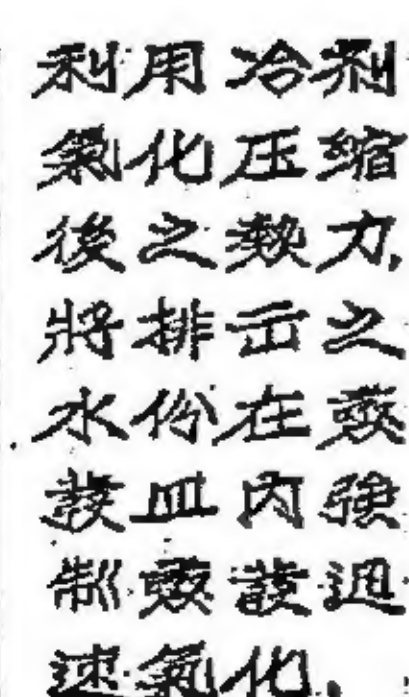 利用冷剂
氣化压縮
後之熱力,
將排出之
水份在蒸
發皿內強
制蒸發迅
速氣化.